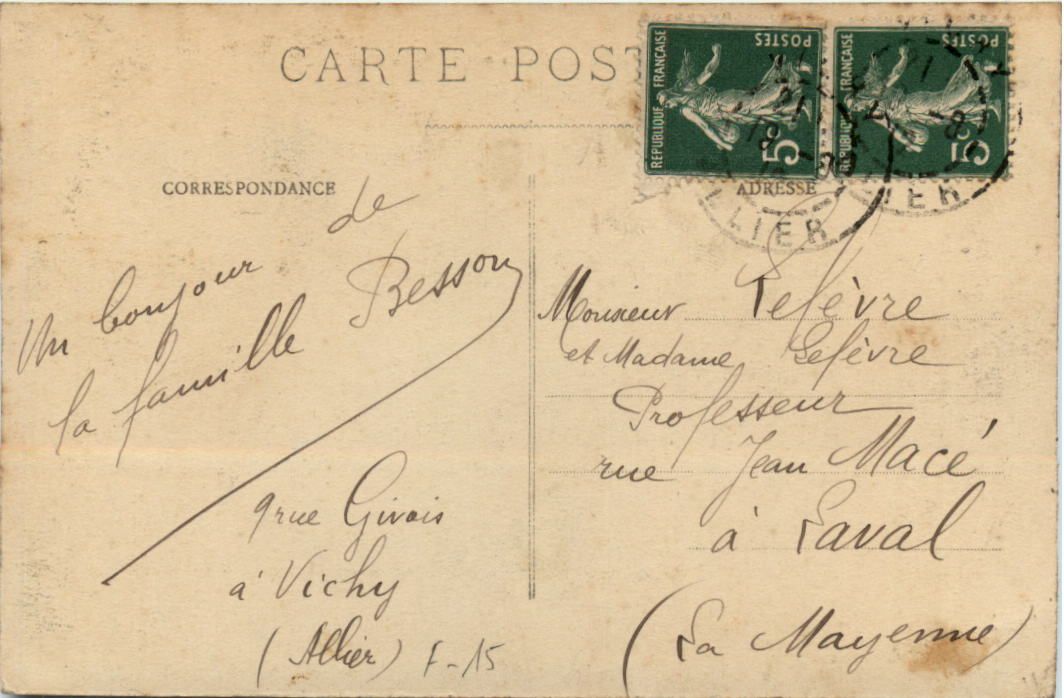 CARTE POST
RÉPUBLIQUE FRANÇAISE
POSTES
5c
RÉPUBLIQUE FRANÇAISE
POSTES
5c
LLIER
LIER
CORRESPONDANCE
ADRESSE
Un bonjour de
la famille Besson
9 rue Givois
à Vichy
(Allier)
F-15
Monsieur Lefèvre
et Madame Lefèvre
Professeur
rue Jean Macé
à Laval
(La Mayenne)